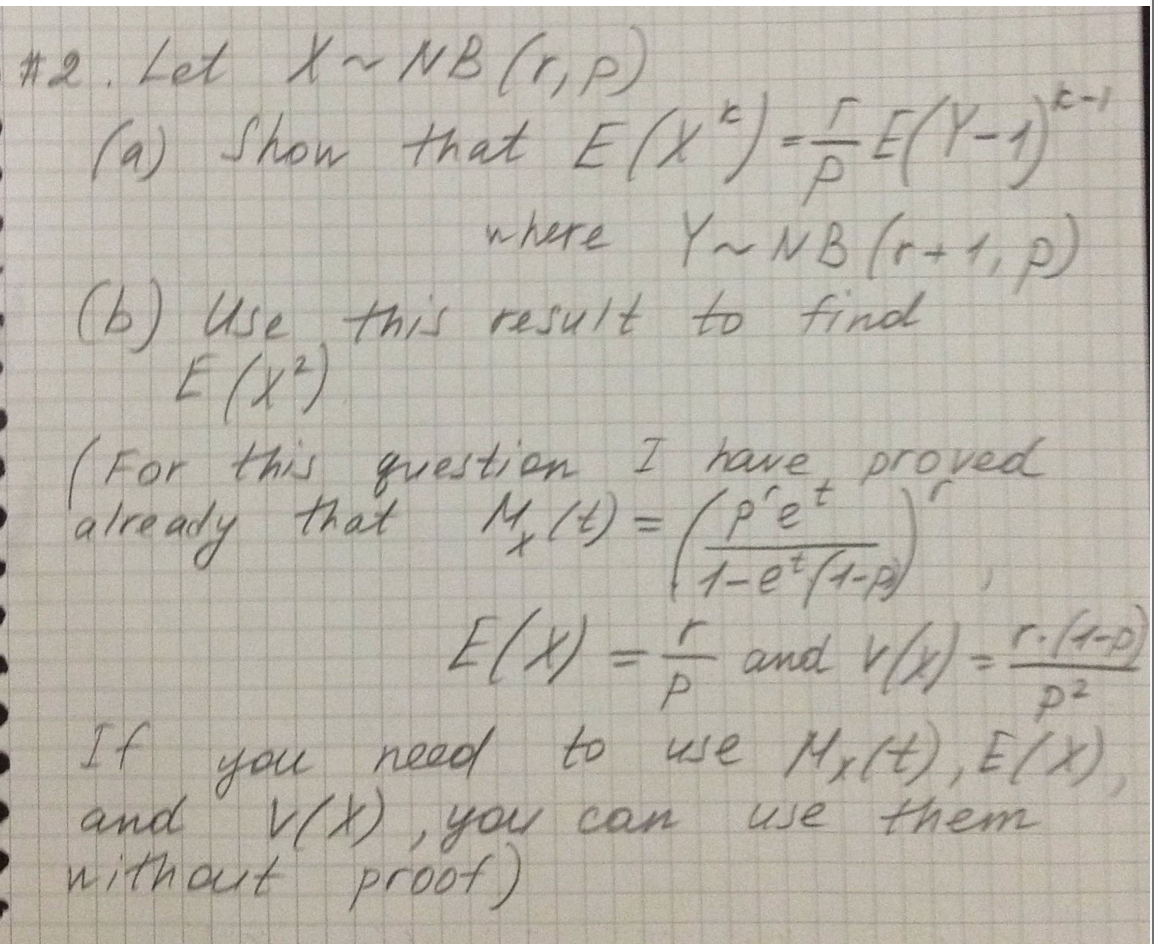 #2. Let X ~ NB(r, p)
(a) Show that E(X^k) = r/p E(Y-1)^{k-1}
where Y ~ NB(r+1, p)
(b) Use this result to find
E(X²)
(For this question I have proved
already that M_x(t) = (p^r e^t / 1-e^t(1-p))^r,
E(X) = r/p and V(X) = r·(1-p)/p²
If you need to use M_x(t), E(X),
and V(X), you can use them
without proof)